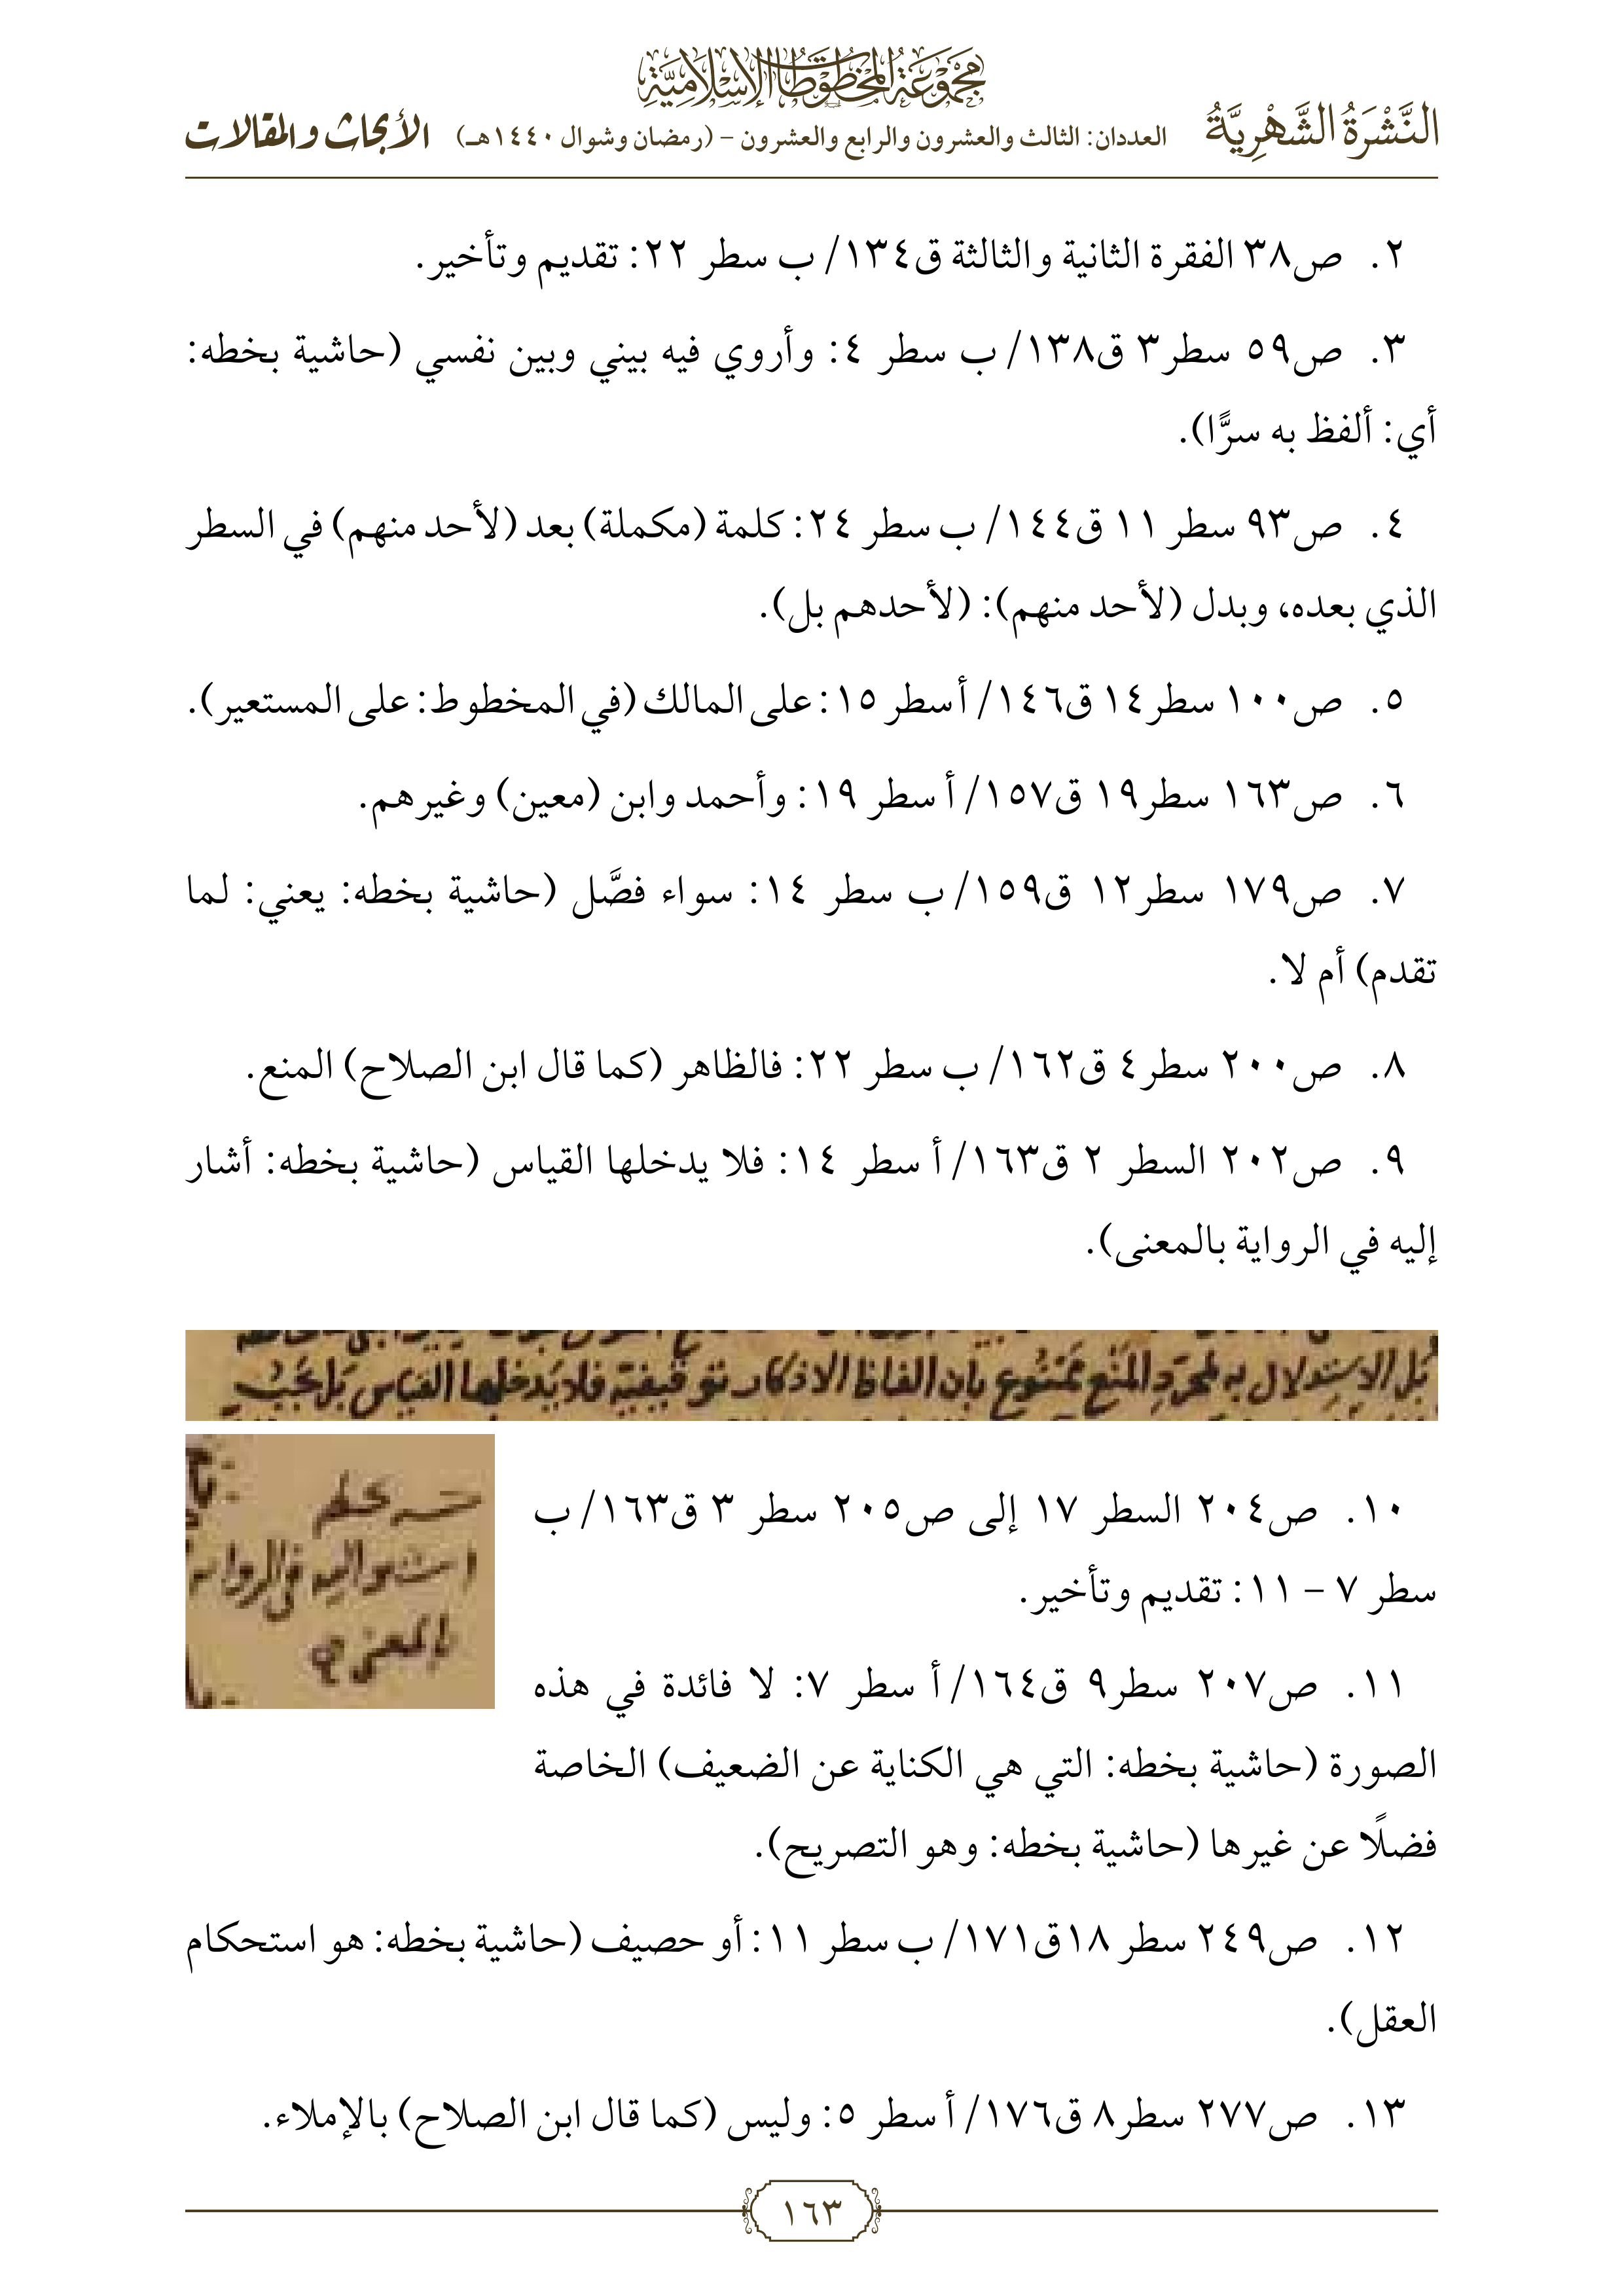 مجموعة المخطوطات الإسلامية
النَّشْرَةُ الشَّهْرِيَّةُ العددان: الثالث والعشرون والرابع والعشرون – (رمضان وشوال ١٤٤٠هـ) الأبحاث والمقالات
٢. ص٣٨ الفقرة الثانية والثالثة ق١٣٤/ ب سطر ٢٢: تقديم وتأخير.
٣. ص٥٩ سطر٣ ق١٣٨/ ب سطر ٤: وأروي فيه بيني وبين نفسي (حاشية بخطه:
أي: ألفظ به سرًّا).
٤. ص٩٣ سطر ١١ ق١٤٤/ ب سطر ٢٤: كلمة (مكملة) بعد (لأحد منهم) في السطر
الذي بعده، وبدل (لأحد منهم): (لأحدهم بل).
٥. ص١٠٠ سطر١٤ ق١٤٦/ أ سطر ١٥: على المالك (في المخطوط: على المستعير).
٦. ص١٦٣ سطر١٩ ق١٥٧/ أ سطر ١٩: وأحمد وابن (معين) وغيرهم.
٧. ص١٧٩ سطر١٢ ق١٥٩/ ب سطر ١٤: سواء فصَّل (حاشية بخطه: يعني: لما
تقدم) أم لا.
٨. ص٢٠٠ سطر٤ ق١٦٢/ ب سطر ٢٢: فالظاهر (كما قال ابن الصلاح) المنع.
٩. ص٢٠٢ السطر ٢ ق١٦٣/ أ سطر ١٤: فلا يدخلها القياس (حاشية بخطه: أشار
إليه في الرواية بالمعنى).
بل الاستدلال به لمجرد المنع ممنوع بأن الفاظ الاذكار توقيفية فلا يدخلها القياس بل يجب
١٠. ص٢٠٤ السطر ١٧ إلى ص٢٠٥ سطر ٣ ق١٦٣/ ب
سطر ٧ – ١١: تقديم وتأخير.
١١. ص٢٠٧ سطر٩ ق١٦٤/ أ سطر ٧: لا فائدة في هذه
الصورة (حاشية بخطه: التي هي الكناية عن الضعيف) الخاصة
فضلًا عن غيرها (حاشية بخطه: وهو التصريح).
١٢. ص٢٤٩ سطر ١٨ق١٧١/ ب سطر ١١: أو حصيف (حاشية بخطه: هو استحكام
العقل).
١٣. ص٢٧٧ سطر٨ ق١٧٦/ أ سطر ٥: وليس (كما قال ابن الصلاح) بالإملاء.
١٦٣